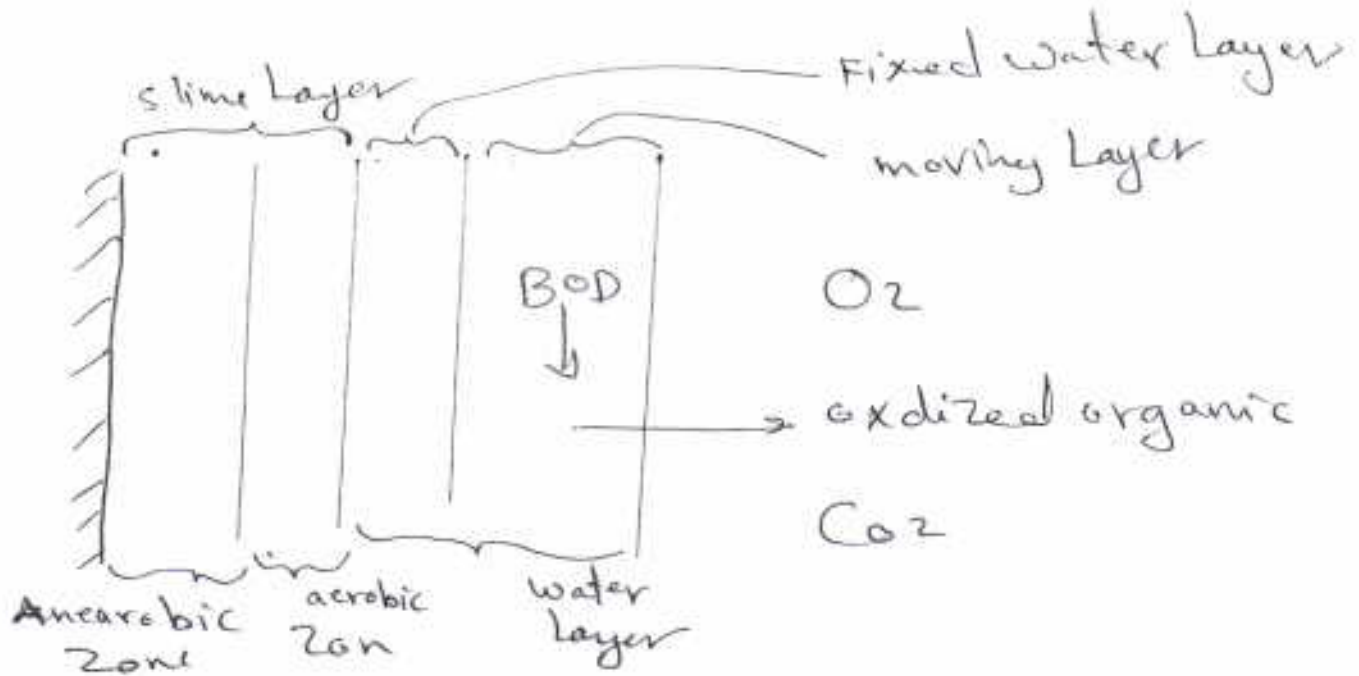 slime Layer
Fixed water Layer
moving Layer
BOD
O2
oxdized organic
Co2
Anearobic
Zone
aerobic
Zon
water
Layer